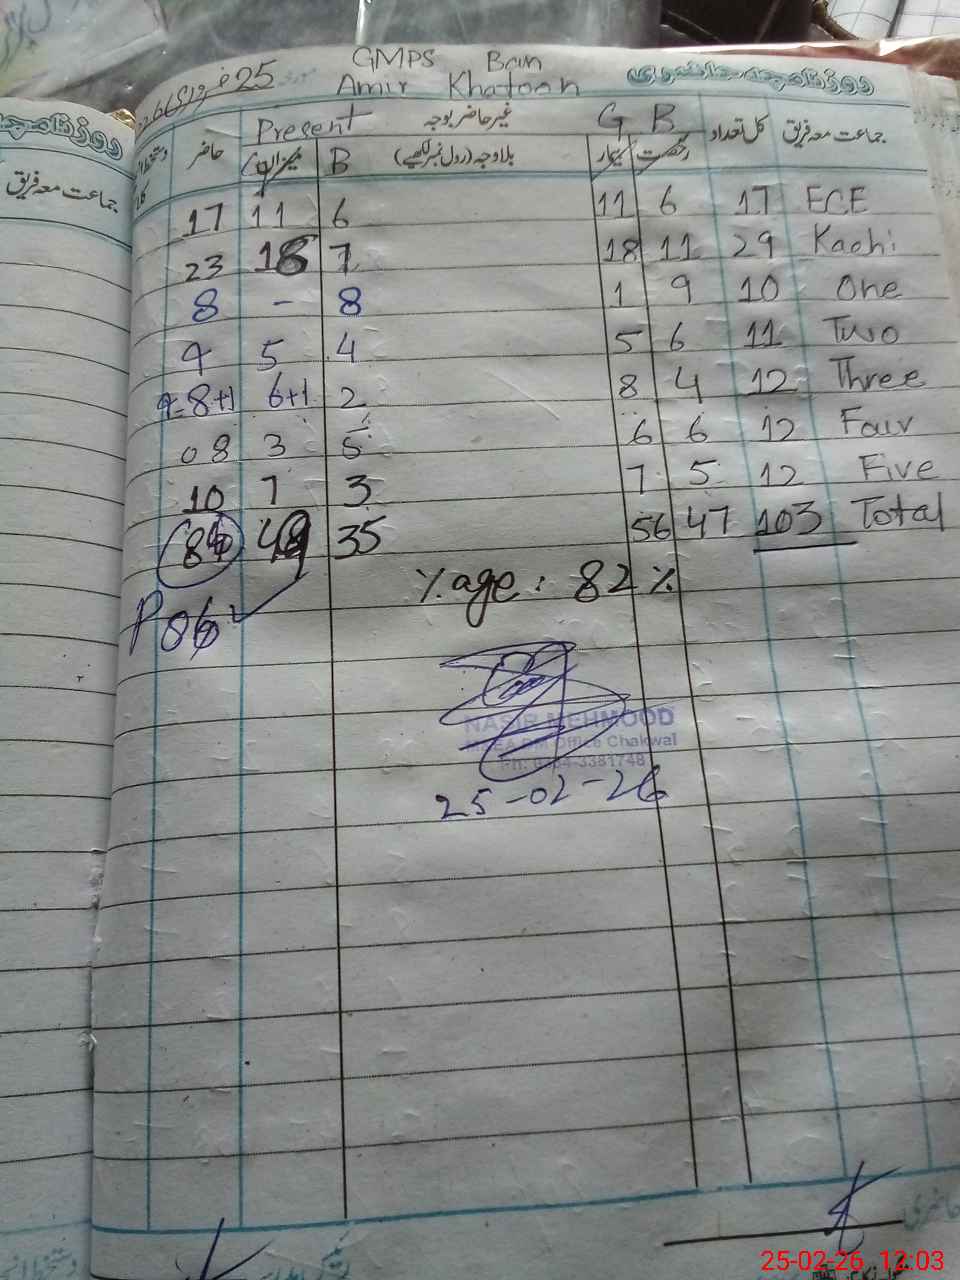 GMPS Ban
Amir Khatoon
روزنامچہ حاضری
25 فروری
جماعت معہ فریق کل تعداد B G غیر حاضر بوجہ Present حاضر
رخصت بیمار بلاوجہ (رول نمبر لکھیے) B میزان G
17 11 6 11 6 17 ECE
23 18 7 18 11 29 Kachi
8 - 8 1 9 10 One
9 5 4 5 6 11 Two
9=8+1 6+1 2 8 4 12 Three
08 3 5 6 6 12 Four
10 7 3 7 5 12 Five
84 49 35 56 47 103 Total
%age: 82 %
P 06
NASIR MEHMOOD
MEA DM Office Chakwal
25-02-26
روزنامچہ
جماعت معہ فریق
حاضری
25-02-26 12:03